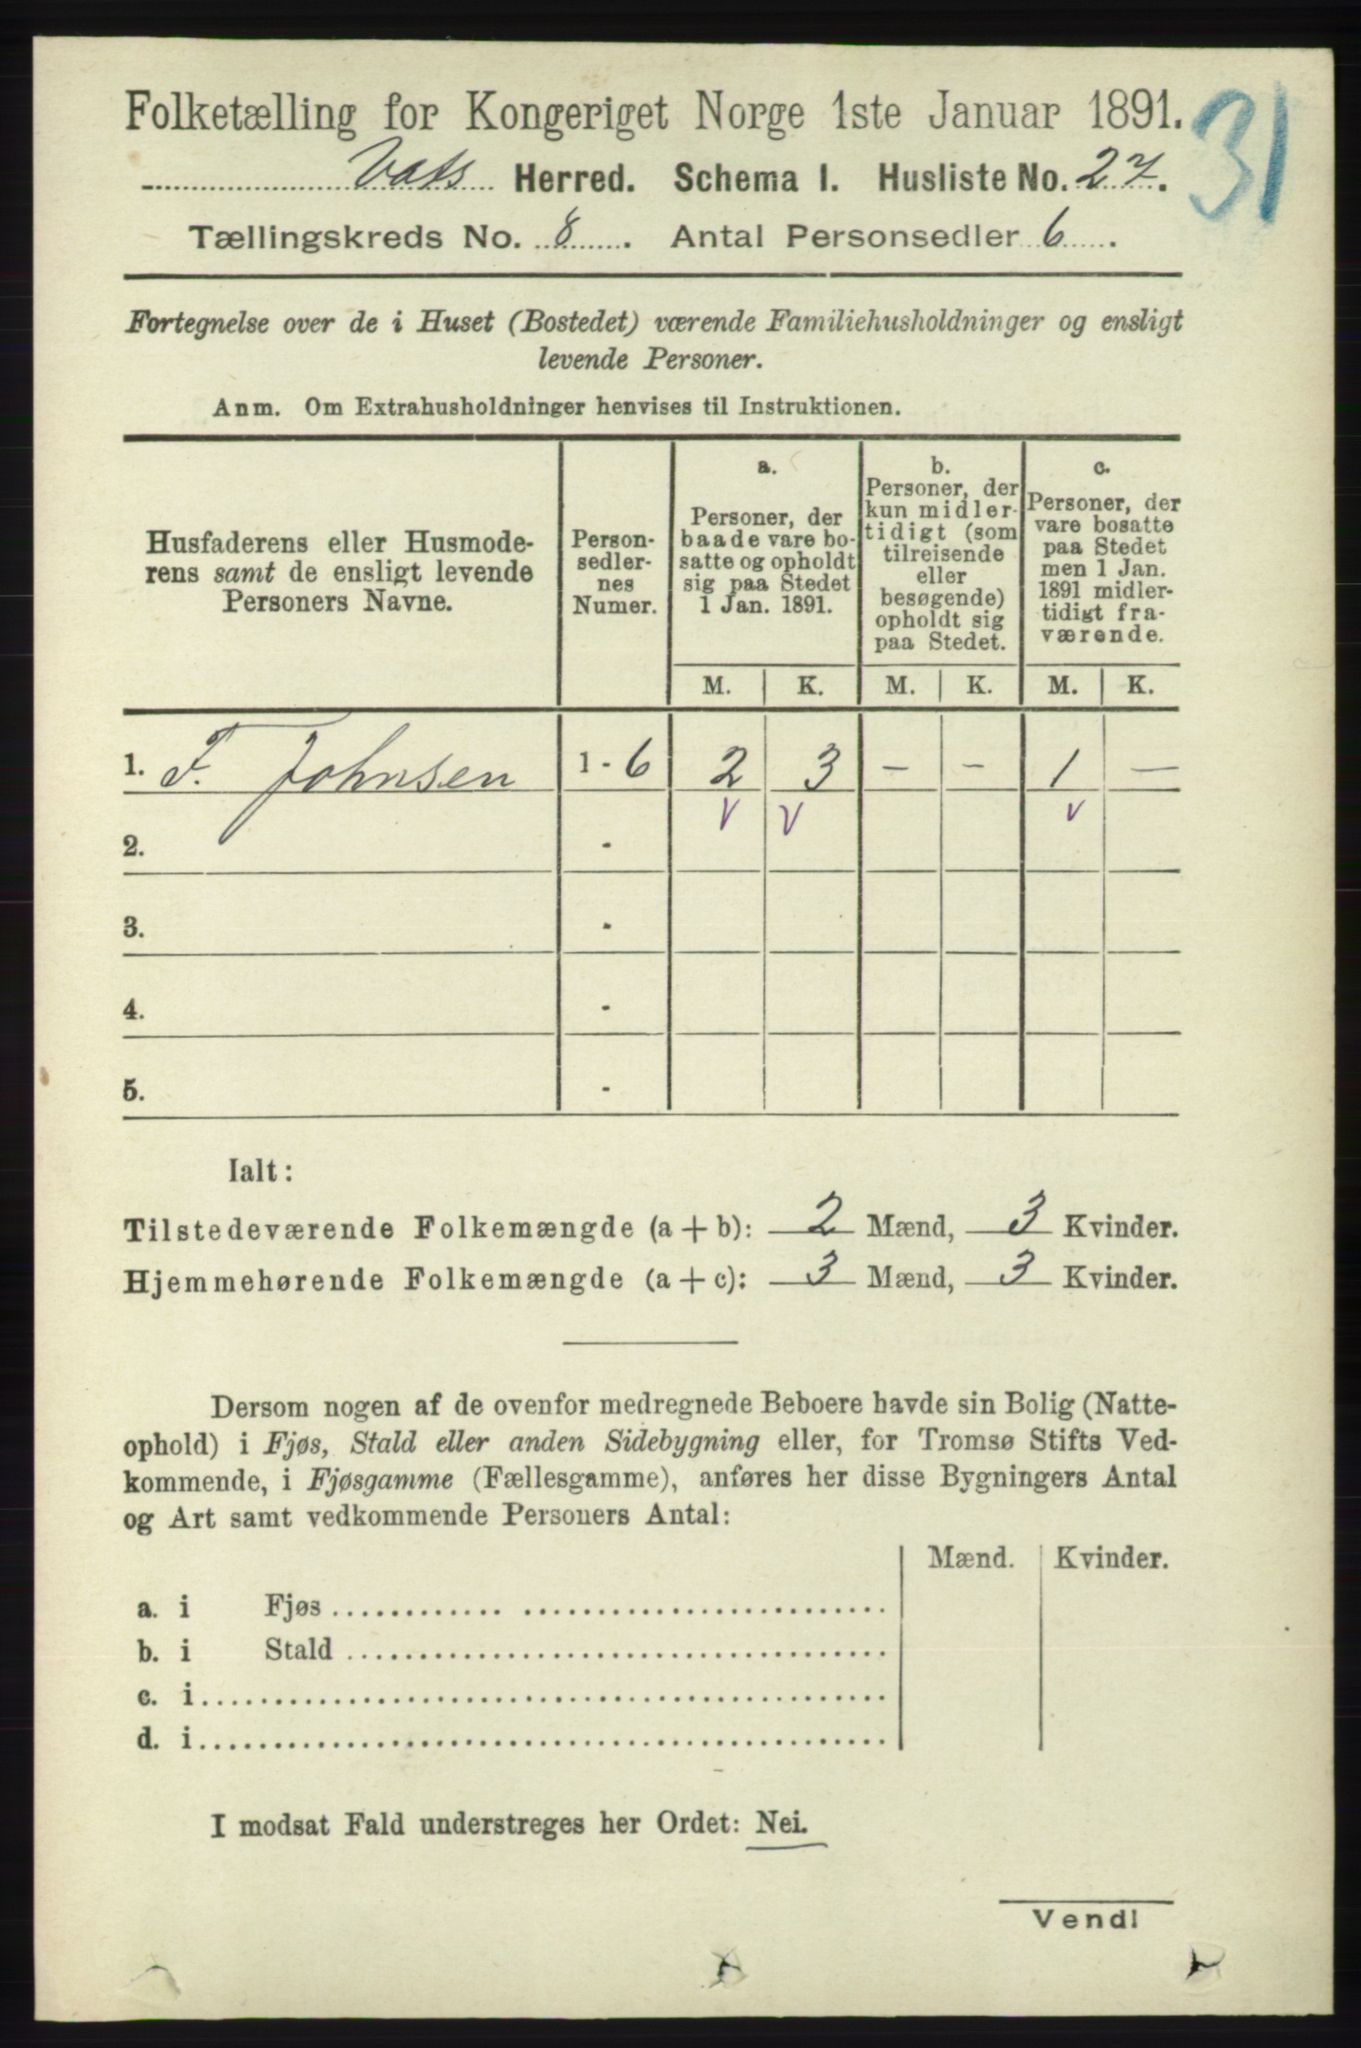 Folketælling for Kongeriget Norge 1ste Januar 1891.
31
Vats Herred. Schema 1. Husliste No. 27.
Tællingskreds No. 8. Antal Personsedler 6.
Fortegnelse over de i Huset (Bostedet) værende Familiehusholdninger og ensligt
levende Personer.
Anm. Om Extrahusholdninger henvises til Instruktionen.
Husfaderens eller Husmode-
rens samt de ensligt levende
Personers Navne.
Person-
sedler-
nes
Numer.
a.
Personer, der
baade vare bo-
satte og opholdt
sig paa Stedet
1 Jan. 1891.
b.
Personer, der
kun midler-
tidigt (som
tilreisende
eller
besøgende)
opholdt sig
paa Stedet.
c.
Personer, der
vare bosatte
paa Stedet
men 1 Jan.
1891 midler-
tidigt fra-
værende.
M. K. M. K. M. K.
1. F. Johnsen 1 - 6 2 3 - - 1 -
V V V
2. -
3. -
4. -
5. -
Ialt:
Tilstedeværende Folkemængde (a + b): 2 Mænd, 3 Kvinder.
Hjemmehørende Folkemængde (a + c): 3 Mænd, 3 Kvinder.
Dersom nogen af de ovenfor medregnede Beboere havde sin Bolig (Natte-
ophold) i Fjøs, Stald eller anden Sidebygning eller, for Tromsø Stifts Ved-
kommende, i Fjøsgamme (Fællesgamme), anføres her disse Bygningers Antal
og Art samt vedkommende Personers Antal:
Mænd. Kvinder.
a. i Fjøs
b. i Stald
c. i
d. i
I modsat Fald understreges her Ordet: Nei.
Vendl